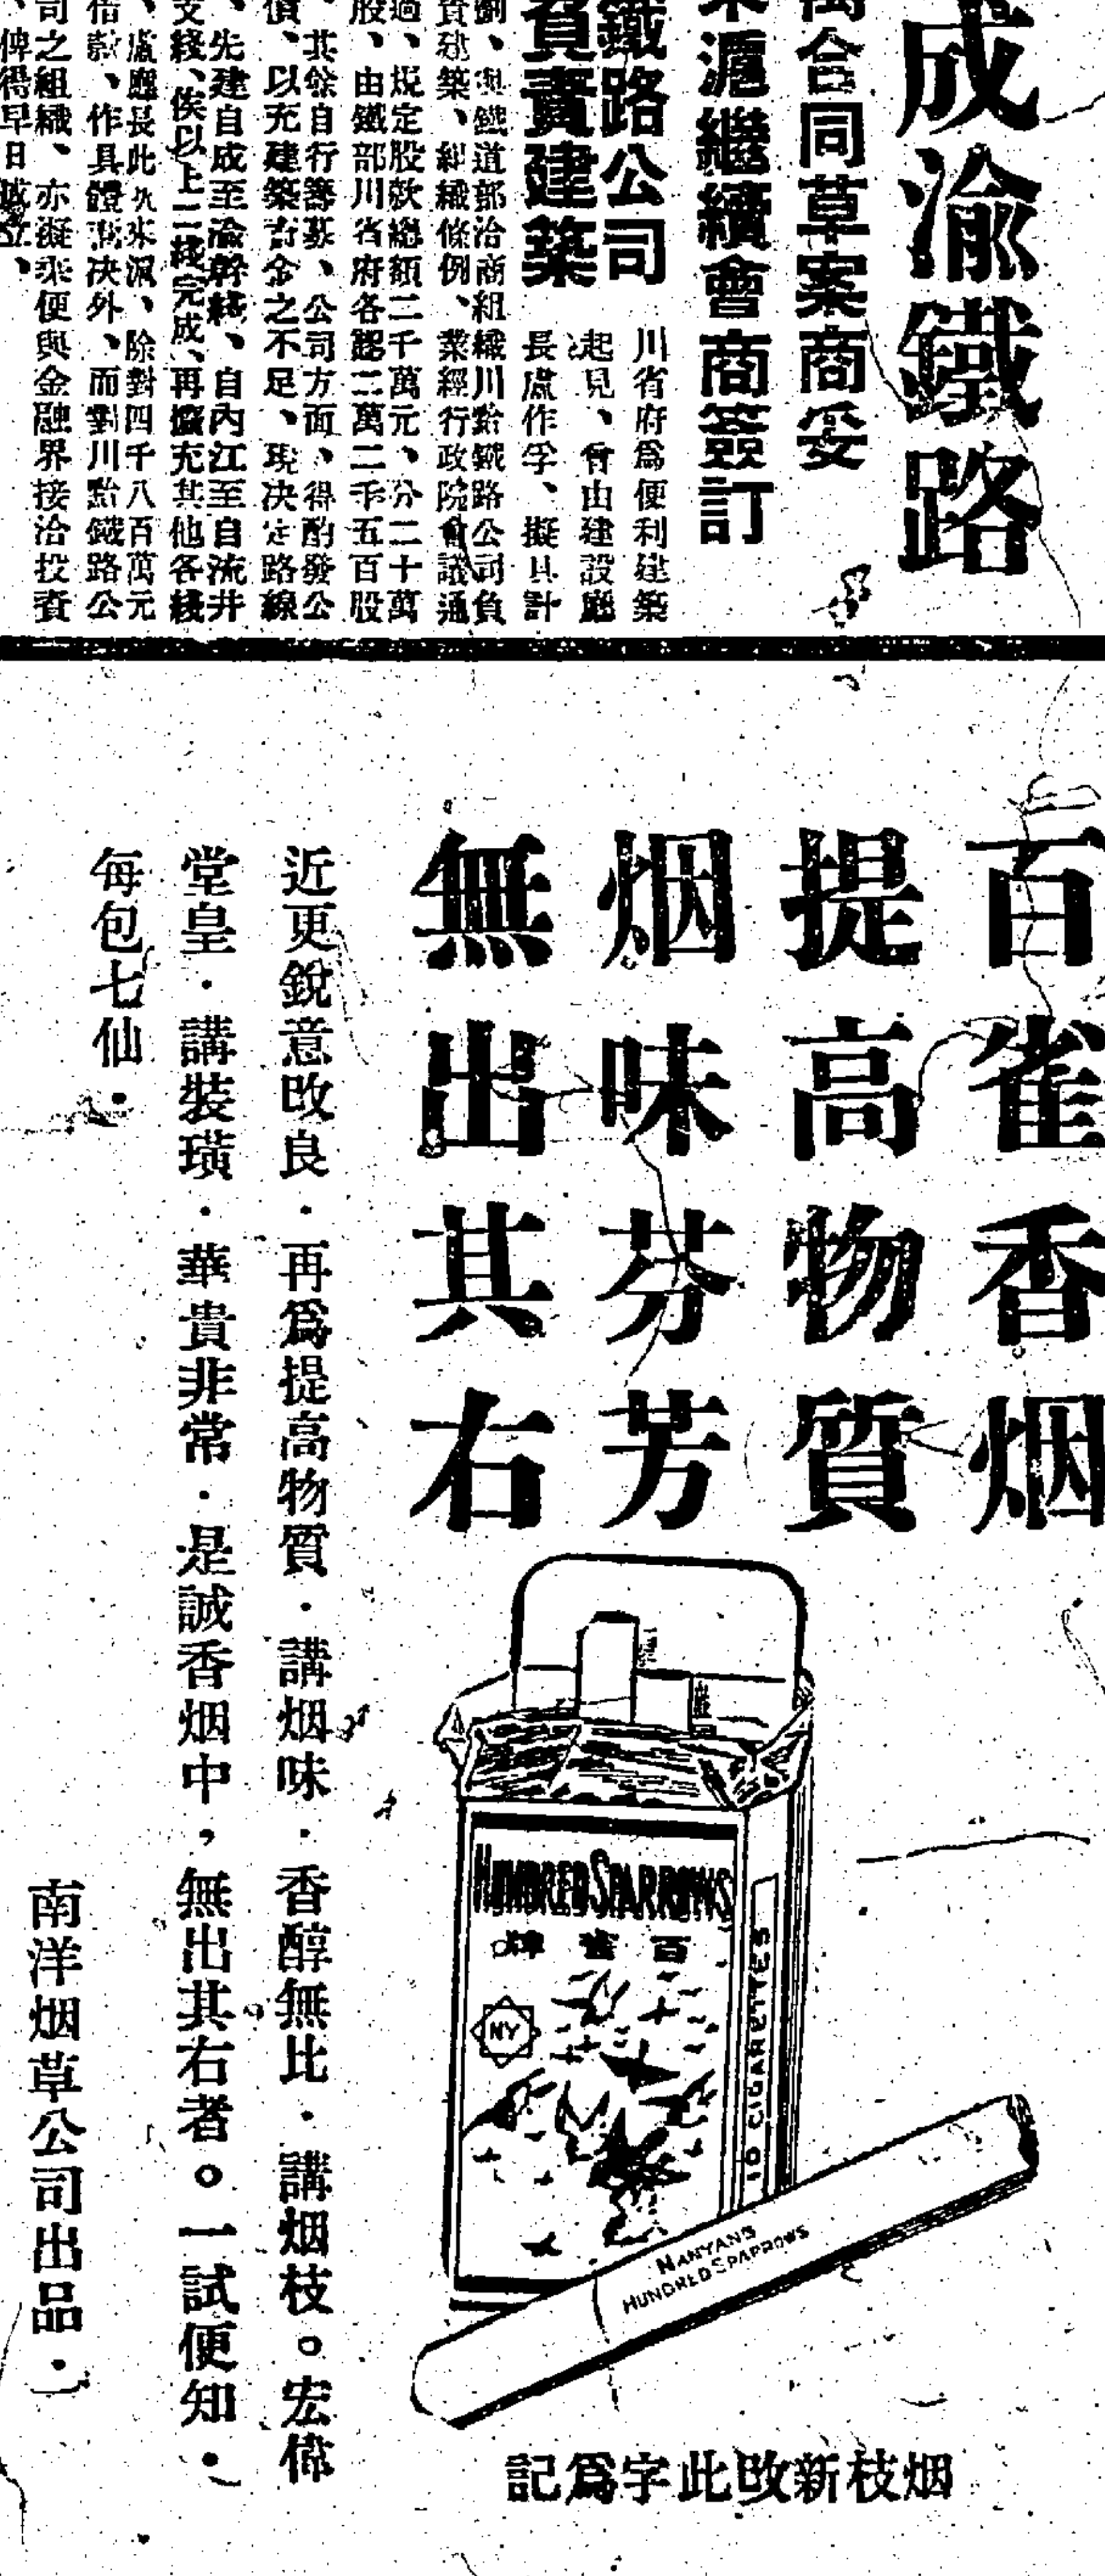 成渝鐵路
萬合同草案商妥
來滬繼續會商簽訂
鐵路公司
負責建築
川省府爲便利建築
起見、曾由建設廳
長盧作孚、擬具計
劃、與鐵道部洽商組織川黔鐵路公司負
責建築、組織條例、業經行政院會議通
過、規定股欵總額二千萬元、分二十萬
股、由鐵部川省府各認二萬二千五百股
、其餘自行籌募、公司方面、得酌發公
債、以充建築資金之不足、現決定路線
、先建自成至渝幹綫、自內江至自流井
支綫、俟以上二綫完成、再擴充其他各綫
、盧廳長此次來滬、除對四千八百萬元
借款、作具體商決外、而對川黔鐵路公
司之組織、亦擬乘便與金融界接洽投資
、俾得早日成立、
百雀香烟
提高物質
烟味芬芳
無出其右
近更銳意改良．再爲提高物質．講烟味．香醇無比．講烟枝。宏偉
堂皇．講裝璜．華貴非常．是誠香烟中，無出其右者。一試便知．
每包七仙．
南洋烟草公司出品．
HUNDRED SPARROWS
百雀牌
NY
10 CIGARETTES
NANYANG
HUNDRED SPARROWS
烟枝新改此字爲記